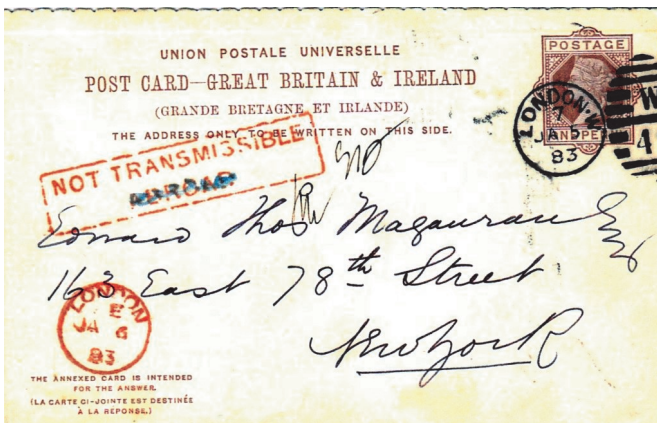 UNION POSTALE UNIVERSELLE
POST CARD—GREAT BRITAIN & IRELAND
(GRANDE BRETAGNE ET IRLANDE)
THE ADDRESS ONLY TO BE WRITTEN ON THIS SIDE.
POSTAGE
LONDON·W
7
JA 5
83
W
4
NOT TRANSMISSIBLE
ABROAD
Edward Thos Magauran Esq
163 East 78th Street
New York
LONDON
E
JA 6
83
THE ANNEXED CARD IS INTENDED
FOR THE ANSWER.
(LA CARTE CI-JOINTE EST DESTINÉE
À LA RÉPONSE.)